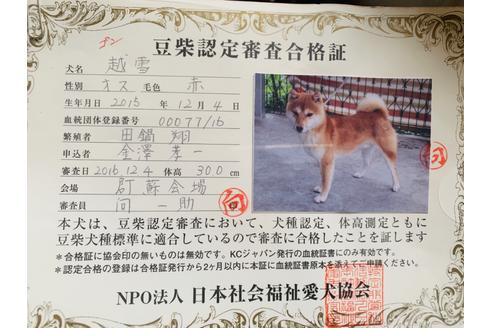 豆柴認定審査合格証
犬名 越雪
性別 オス 毛色 赤
生年月日 2015年12月4日
血統団体登録番号 00077/16
繁殖者 田鍋 翔
申込者 金澤 孝一
審査日 2016.12.4 体高 30.0 cm
会場 阿蘇会場
審査員 向 一助
本犬は、豆柴認定審査において、犬種認定、体高測定ともに
豆柴犬種標準に適合しているので審査に合格したことを証します
*合格証に協会印の無いものは無効です。KCジャパン発行の血統証書にのみ有効です。
*認定合格の登録は合格証発行から2ヶ月以内に本証に血統証書原本を添えてご申請ください。
NPO法人 日本社会福祉愛犬協会